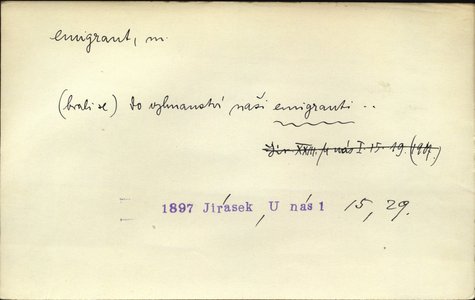 emigrant, m.
(brali se) do vyhnanství naši emigranti ..
Jir. XXIII. U nás I. 15. 19. (1907.)
1897 Jirásek, U nás 1 15, 29.